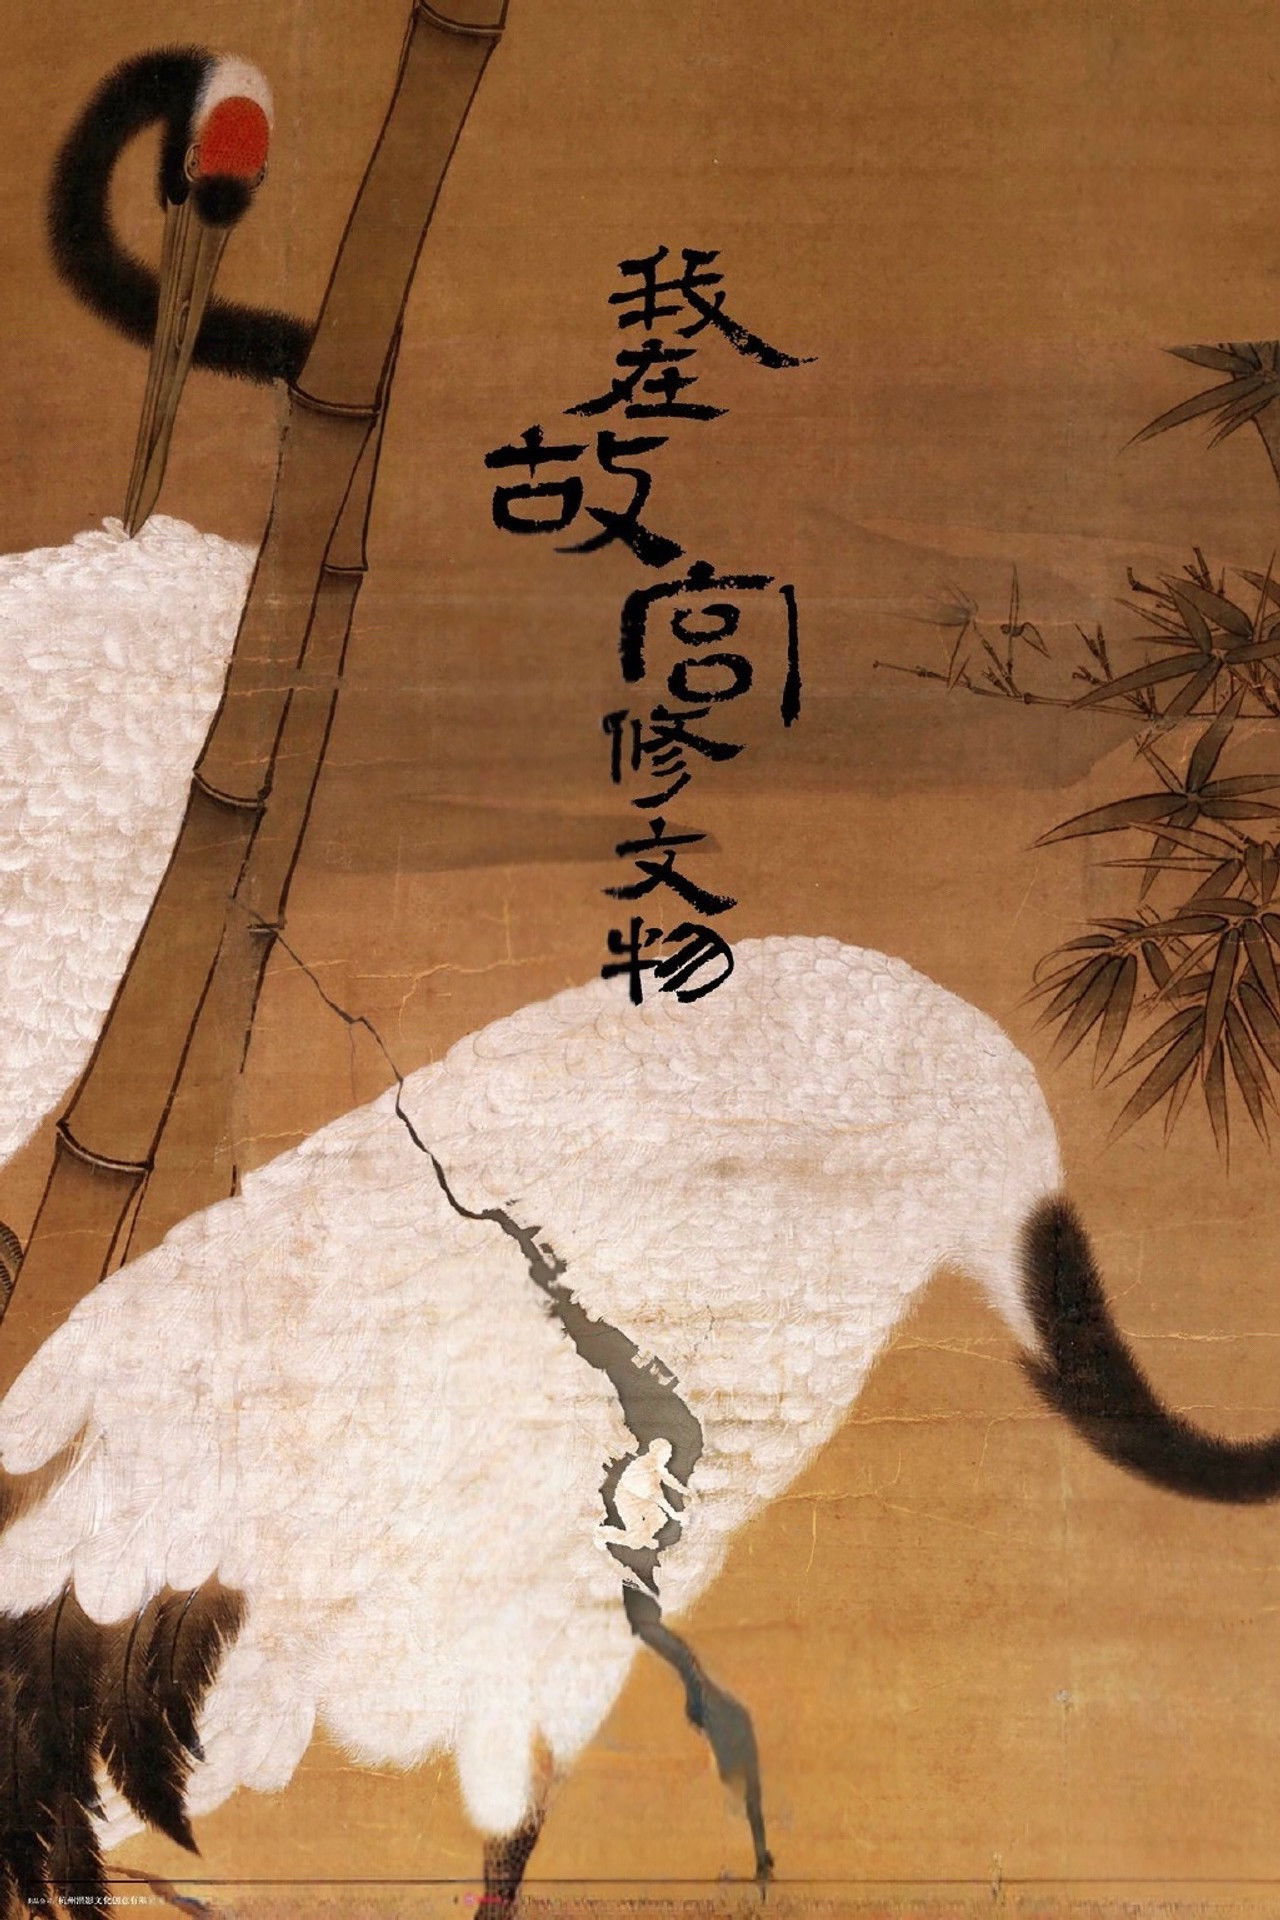 我在故宫修文物
杭州潜影文化创意有限